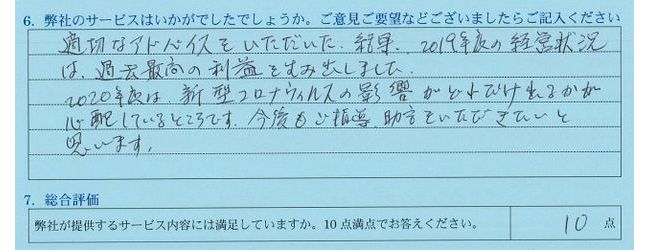 6. 弊社のサービスはいかがでしたでしょうか。ご意見ご要望などございましたらご記入ください
適切なアドバイスをいただいた結果、2019年度の経営状況
は、過去最高の利益をむみ出しました。
2020年度は、新型コロナウィルスの影響がどれだけ出るかが
心配しているところです。今後もご指導、助言をいただきたいと
思います。
7. 総合評価
弊社が提供するサービス内容には満足していますか。10 点満点でお答えください。 10 点